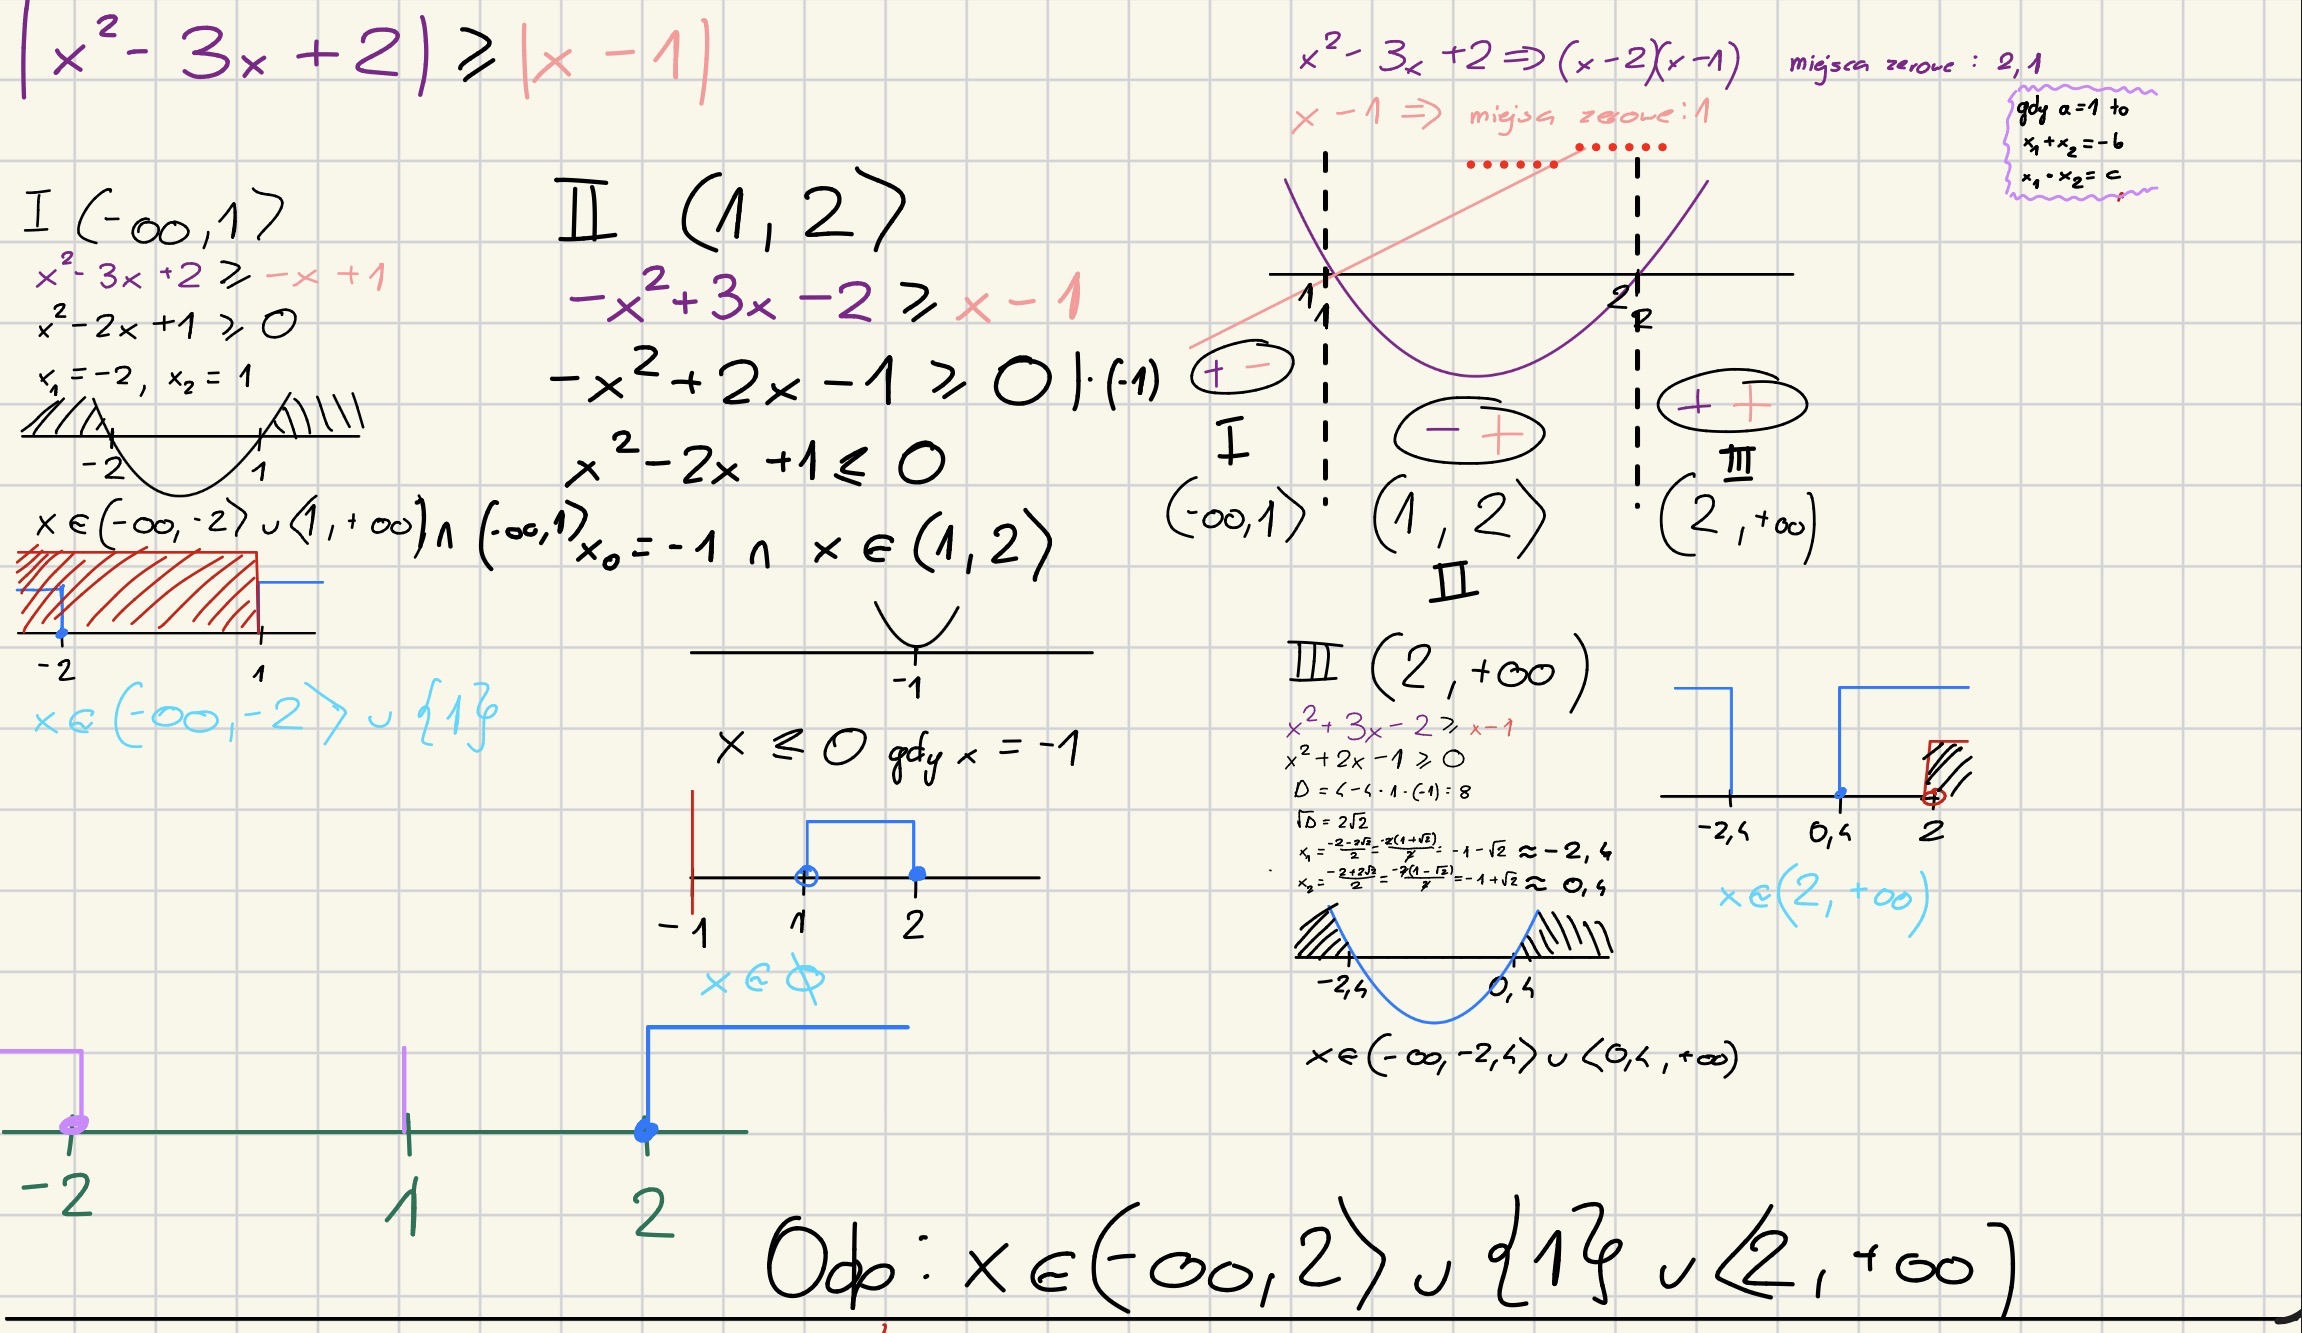 |x² - 3x + 2| ⩾ |x - 1|
x² - 3x + 2 ⇒ (x-2)(x-1) miejsca zerowe : 2,1
x - 1 ⇒ miejsa zerowe: 1
gdy a = 1 to
x₁ + x₂ = -b
x₁ · x₂ = c
1
2
1
2
+ -
- +
+ +
I
III
(-∞, 1⟩
(1, 2⟩
(2, +∞)
II
I (-∞, 1⟩
x² - 3x + 2 ⩾ -x + 1
x² - 2x + 1 ⩾ 0
x₁ = -2, x₂ = 1
-2
1
x ∈ (-∞, -2⟩ ∪ ⟨1, +∞) ∩ (-∞, 1⟩
-2
1
x ∈ (-∞, -2⟩ ∪ {1}
II (1, 2⟩
-x² + 3x - 2 ⩾ x - 1
-x² + 2x - 1 ⩾ 0 |·(-1)
x² - 2x + 1 ⩽ 0
x₀ = -1 ∩ x ∈ (1, 2⟩
-1
x ⩽ 0 gdy x = -1
-1
1
2
x ∈ ∅
III (2, +∞)
x² + 3x - 2 ⩾ x - 1
x² + 2x - 1 ⩾ 0
D = 4 - 4 · 1 · (-1) = 8
√D = 2√2
x₁ = (-2-2√2)/2 = (-2(1+√2))/2 = -1 - √2 ≈ -2,4
x₂ = (-2+2√2)/2 = (-2(1-√2))/2 = -1 + √2 ≈ 0,4
-2,4
0,4
x ∈ (-∞, -2,4⟩ ∪ ⟨0,4, +∞)
-2,4
0,4
2
x ∈ (2, +∞)
-2
1
2
Odp: x ∈ (-∞, 2⟩ ∪ {1} ∪ ⟨2, +∞)